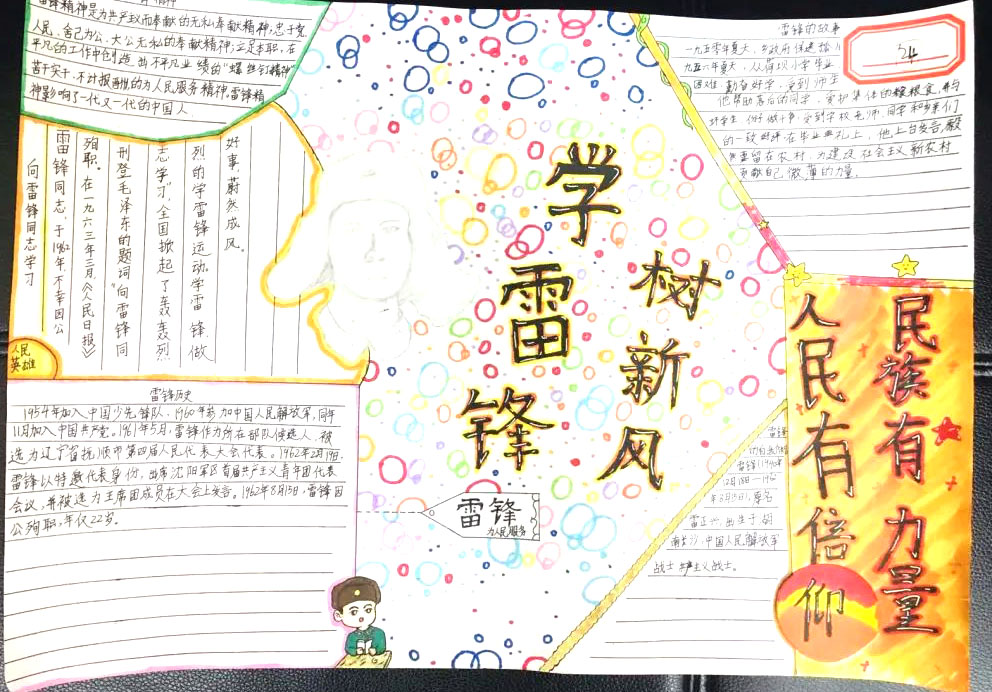 精神
雷锋精神是为共产政而奉献的无私奉献精神,忠于党
人民、舍己为公、大公无私的奉献精神,立足本职、在
平凡的工作中创造出不平凡业绩的“螺丝钉精神”
苦干实干、不计报酬的为人民服务精神。雷锋精
神影响了一代又一代的中国人
向雷锋同志学习
雷锋同志,于1962年,不幸因公
殉职。在一九六三年三月《人民日报》
刊登毛泽东的题词“向雷锋同
志学习”,全国掀起了轰轰烈
烈的学雷锋运动,学雷锋做
好事,蔚然成风。
人民
英雄
雷锋历史
1954年加入中国少先锋队、1960年参加中国人民解放军,同年
11月加入中国共产党。1961年5月,雷锋作为所在部队候选人,被
选为辽宁省抚顺市第四届人民代表大会代表。1962年2月19日,
雷锋以特邀代表身份,出席沈阳军区首届共产主义青年团代表
会议,并被选为主席团成员在大会上发言。1962年8月15日,雷锋因
公殉职,年仅22岁。
学雷锋
树新风
雷锋
为人民服务
雷锋的故事
24
一九五零年夏天,乡政府保送
九五六年夏天,从
困难 勤奋好学,受到师生
他帮助落后的同学,爱护集体的粮食,并与
好学生 做好事 受到学校老师、同学和乡亲们
的一致好评在毕业典礼上,他上台发言,
留在农村,为建设社会主义新农村
贡献自己微薄的力量。
雷锋
雷锋(1940年
12月18日—196
年8月15日),原名
雷正兴,出生于湖
南长沙,中国人民解放军
战士 共产主义战士。
人民有倍仰
民族有力量